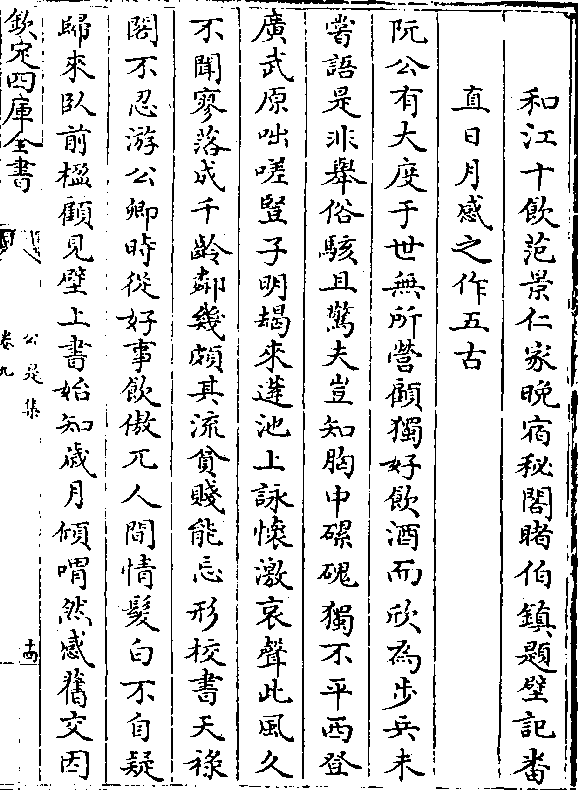 和江十飲范景仁家晚宿秘閣睹伯鎮題壁記番
直日月感之作五古
阮公有大度于世無所營顧獨好飲酒而欣為步兵未
嘗語是非舉俗駭且驚夫豈知胸中磥磈獨不平西登
廣武原咄嗟豎子明朅來蓬池上詠懷激哀聲此風久
不聞寥落成千齡鄰幾頗其流貧賤能忘形校書天祿
閣不忍游公卿時從好事飲傲兀人間情髮白不自疑
歸來臥前楹顧見壁上書始知歲月傾喟然感舊交因
欽定四庫全書
公是集
卷九
十四